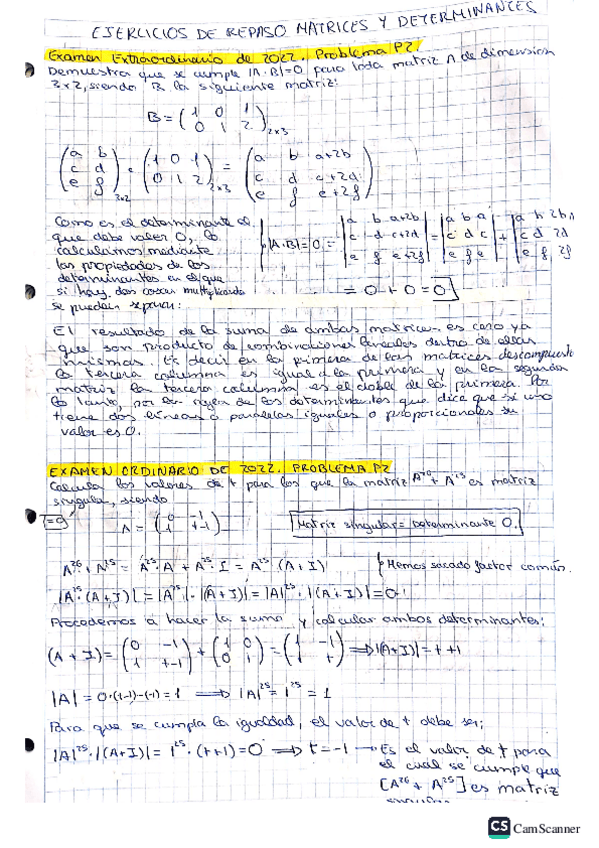 EJERCICIOS DE REPASO MATRICES Y DETERMINANTES
Examen Extraordinario de 2022. Problema P2.
Demuestra que se cumple |A·B|=0 para toda matriz A de dimensión
3x2, siendo B la siguiente matriz:
B = (1 0 1
0 1 2)2x3
(a b
c d
e f)3x2 · (1 0 1
0 1 2)2x3 = (a b a+2b
c d c+2d
e f e+2f)
Como es el determinante el
que debe valer 0, lo
calculamos mediante
las propiedades de los
determinantes en el que
si hay dos cosas multiplicando
se pueden separar:
|A·B|=0 = |a b a+2b
c d c+2d
e f e+2f| = |a b a
c d c
e f e| + |a b 2b
c d 2d
e f 2f|
= 0 + 0 = 0
El resultado de la suma de ambas matrices es cero ya
que son producto de combinaciones lineales dentro de ellas
mismas. Es decir en la primera de las matrices descompuesta
la tercera columna es igual a la primera y en la segunda
matriz la tercera columna es el doble de la primera. Por
lo tanto, por la regla de los determinantes que dice que si uno
tiene dos líneas paralelas iguales o proporcionales su
valor es 0.
EXAMEN ORDINARIO DE 2022. PROBLEMA P2
Calcula los valores de t para los que la matriz A²⁶ + A²⁵ es matriz
singular, siendo
A = (0 -1
1 t-1)
Matriz singular = Determinante 0.
A²⁶ + A²⁵ = A²⁵·A + A²⁵·I = A²⁵·(A+I)
Hemos sacado factor común.
|A²⁵·(A+I)| = |A²⁵|·|(A+I)| = |A|²⁵·|(A+I)| = 0
Procedemos a hacer la suma y calcular ambos determinantes:
(A+I) = (0 -1
1 t-1) + (1 0
0 1) = (1 -1
1 t) ⟹ |(A+I)| = t+1
|A| = 0·(t-1)-(-1) = 1 ⟹ |A|²⁵ = 1²⁵ = 1
Para que se cumpla la igualdad, el valor de t debe ser:
|A|²⁵·|(A+I)| = 1²⁵·(t+1) = 0 ⟹ t = -1 → Es el valor de t para
el cual se cumple que
[A²⁶ + A²⁵] es matriz
CS CamScanner